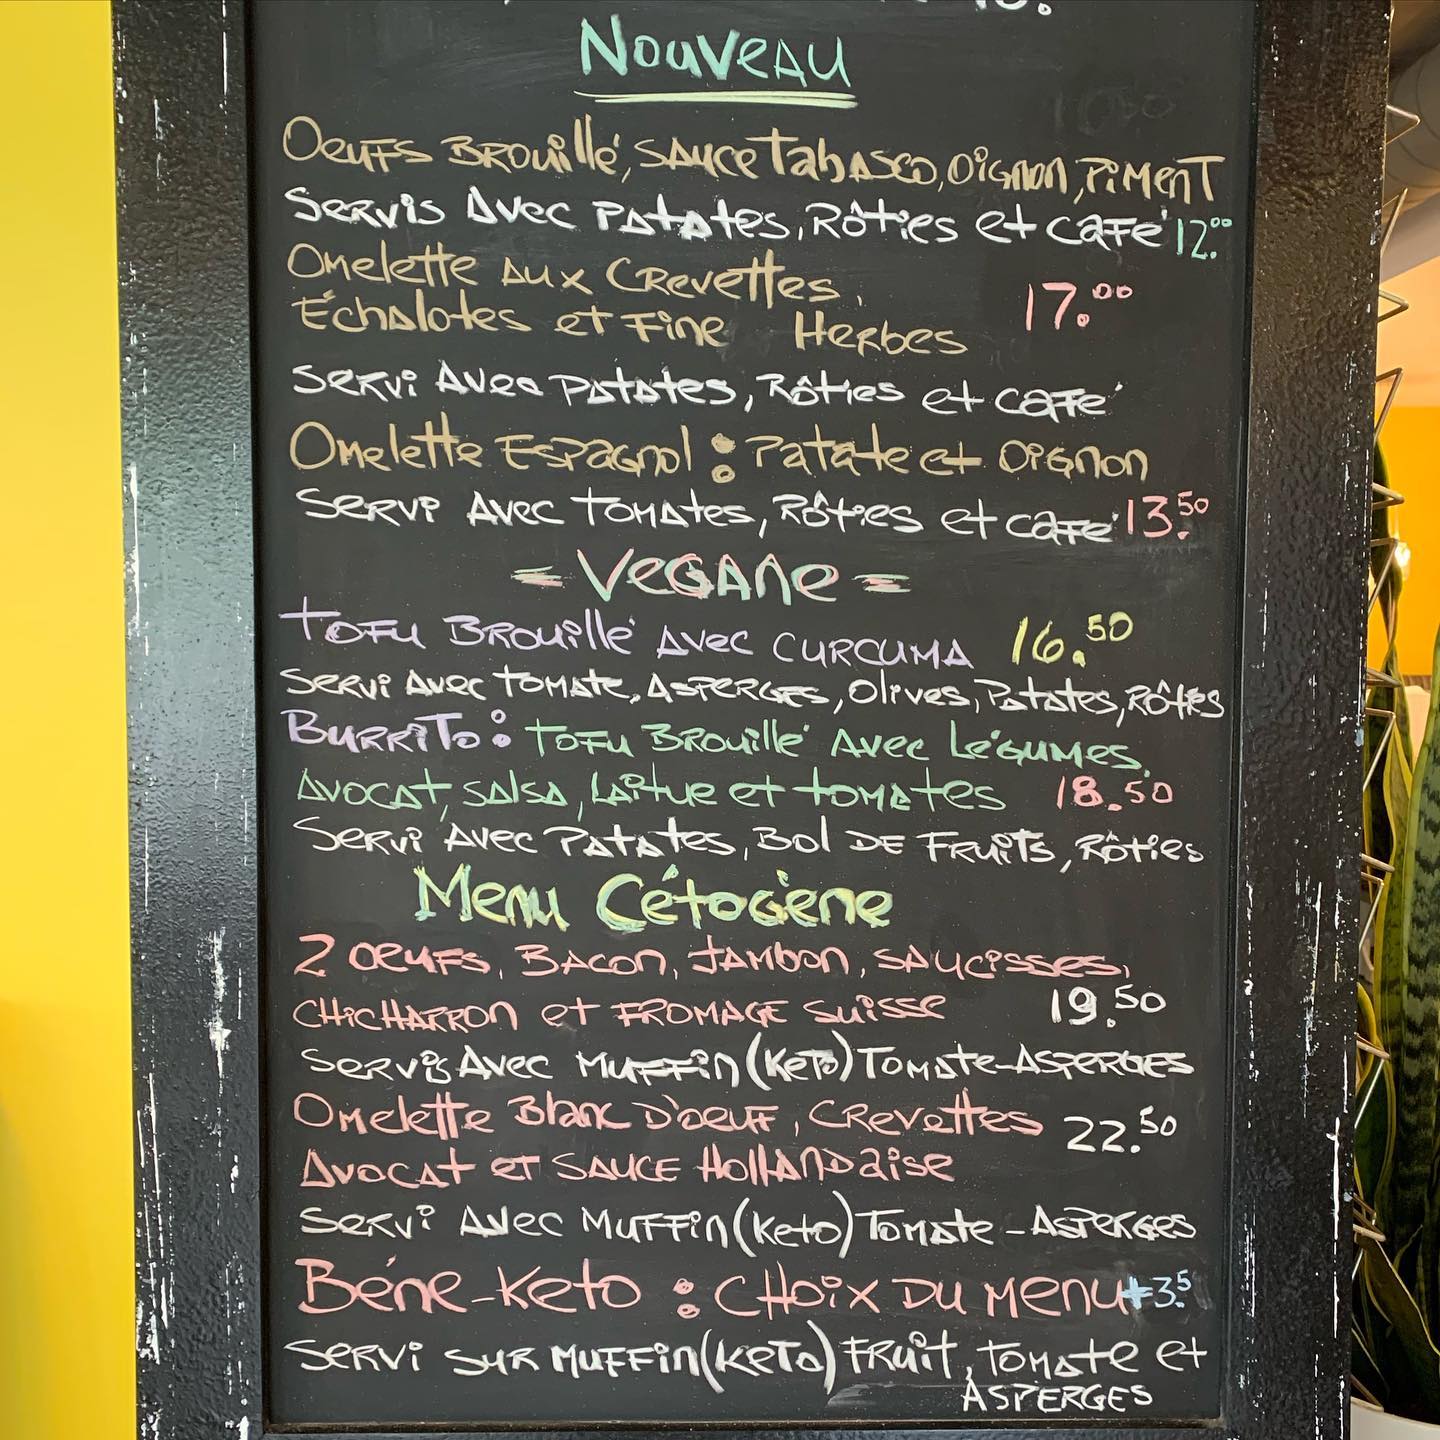 Nouveau
Oeufs Brouillé, sauce tabasco, oignon, piment
Servis avec patates, rôties et café 12.00
Omelette aux crevettes,
Échalotes et fine Herbes 17.00
Servi avec patates, rôties et café
Omelette Espagnol : patate et oignon
Servi avec tomates, rôties et café 13.50
= Vegane =
Tofu Brouillé avec curcuma 16.50
Servi avec tomate, asperges, olives, patates, rôties
Burrito : tofu Brouillé avec légumes,
Avocat, salsa, laitue et tomates 18.50
Servi avec patates, bol de fruits, rôties
Menu Cétogène
2 oeufs, bacon, jambon, saucisses,
chicharron et fromage suisse 19.50
Servis avec muffin (keto) tomate-asperges
Omelette blanc d'oeuf, crevettes 22.50
Avocat et sauce Hollandaise
Servi avec muffin (keto) tomate - asperges
Béné-Keto : choix du menu +3.5
Servi sur muffin (keto) fruit, tomate et
asperges